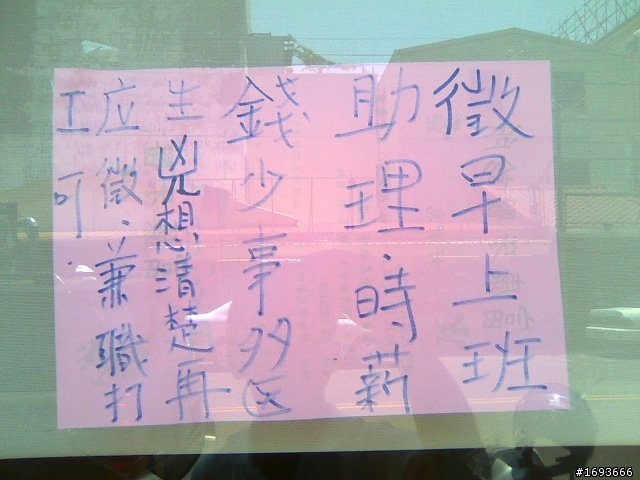 徵早上班
助理．時薪
錢少事多医
生兇想清楚再
应徵．兼職打
工可．
#1693666